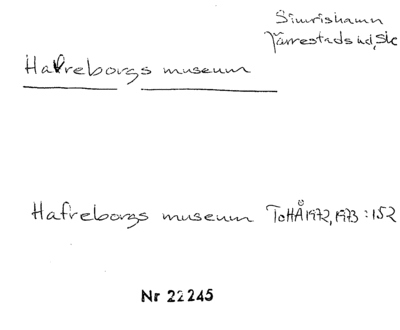 Simrishamn
Järrestads hd, Sk
Hafreborgs museum
Hafreborgs museum ToHÅ 1972, 1973 : 152
Nr 22245